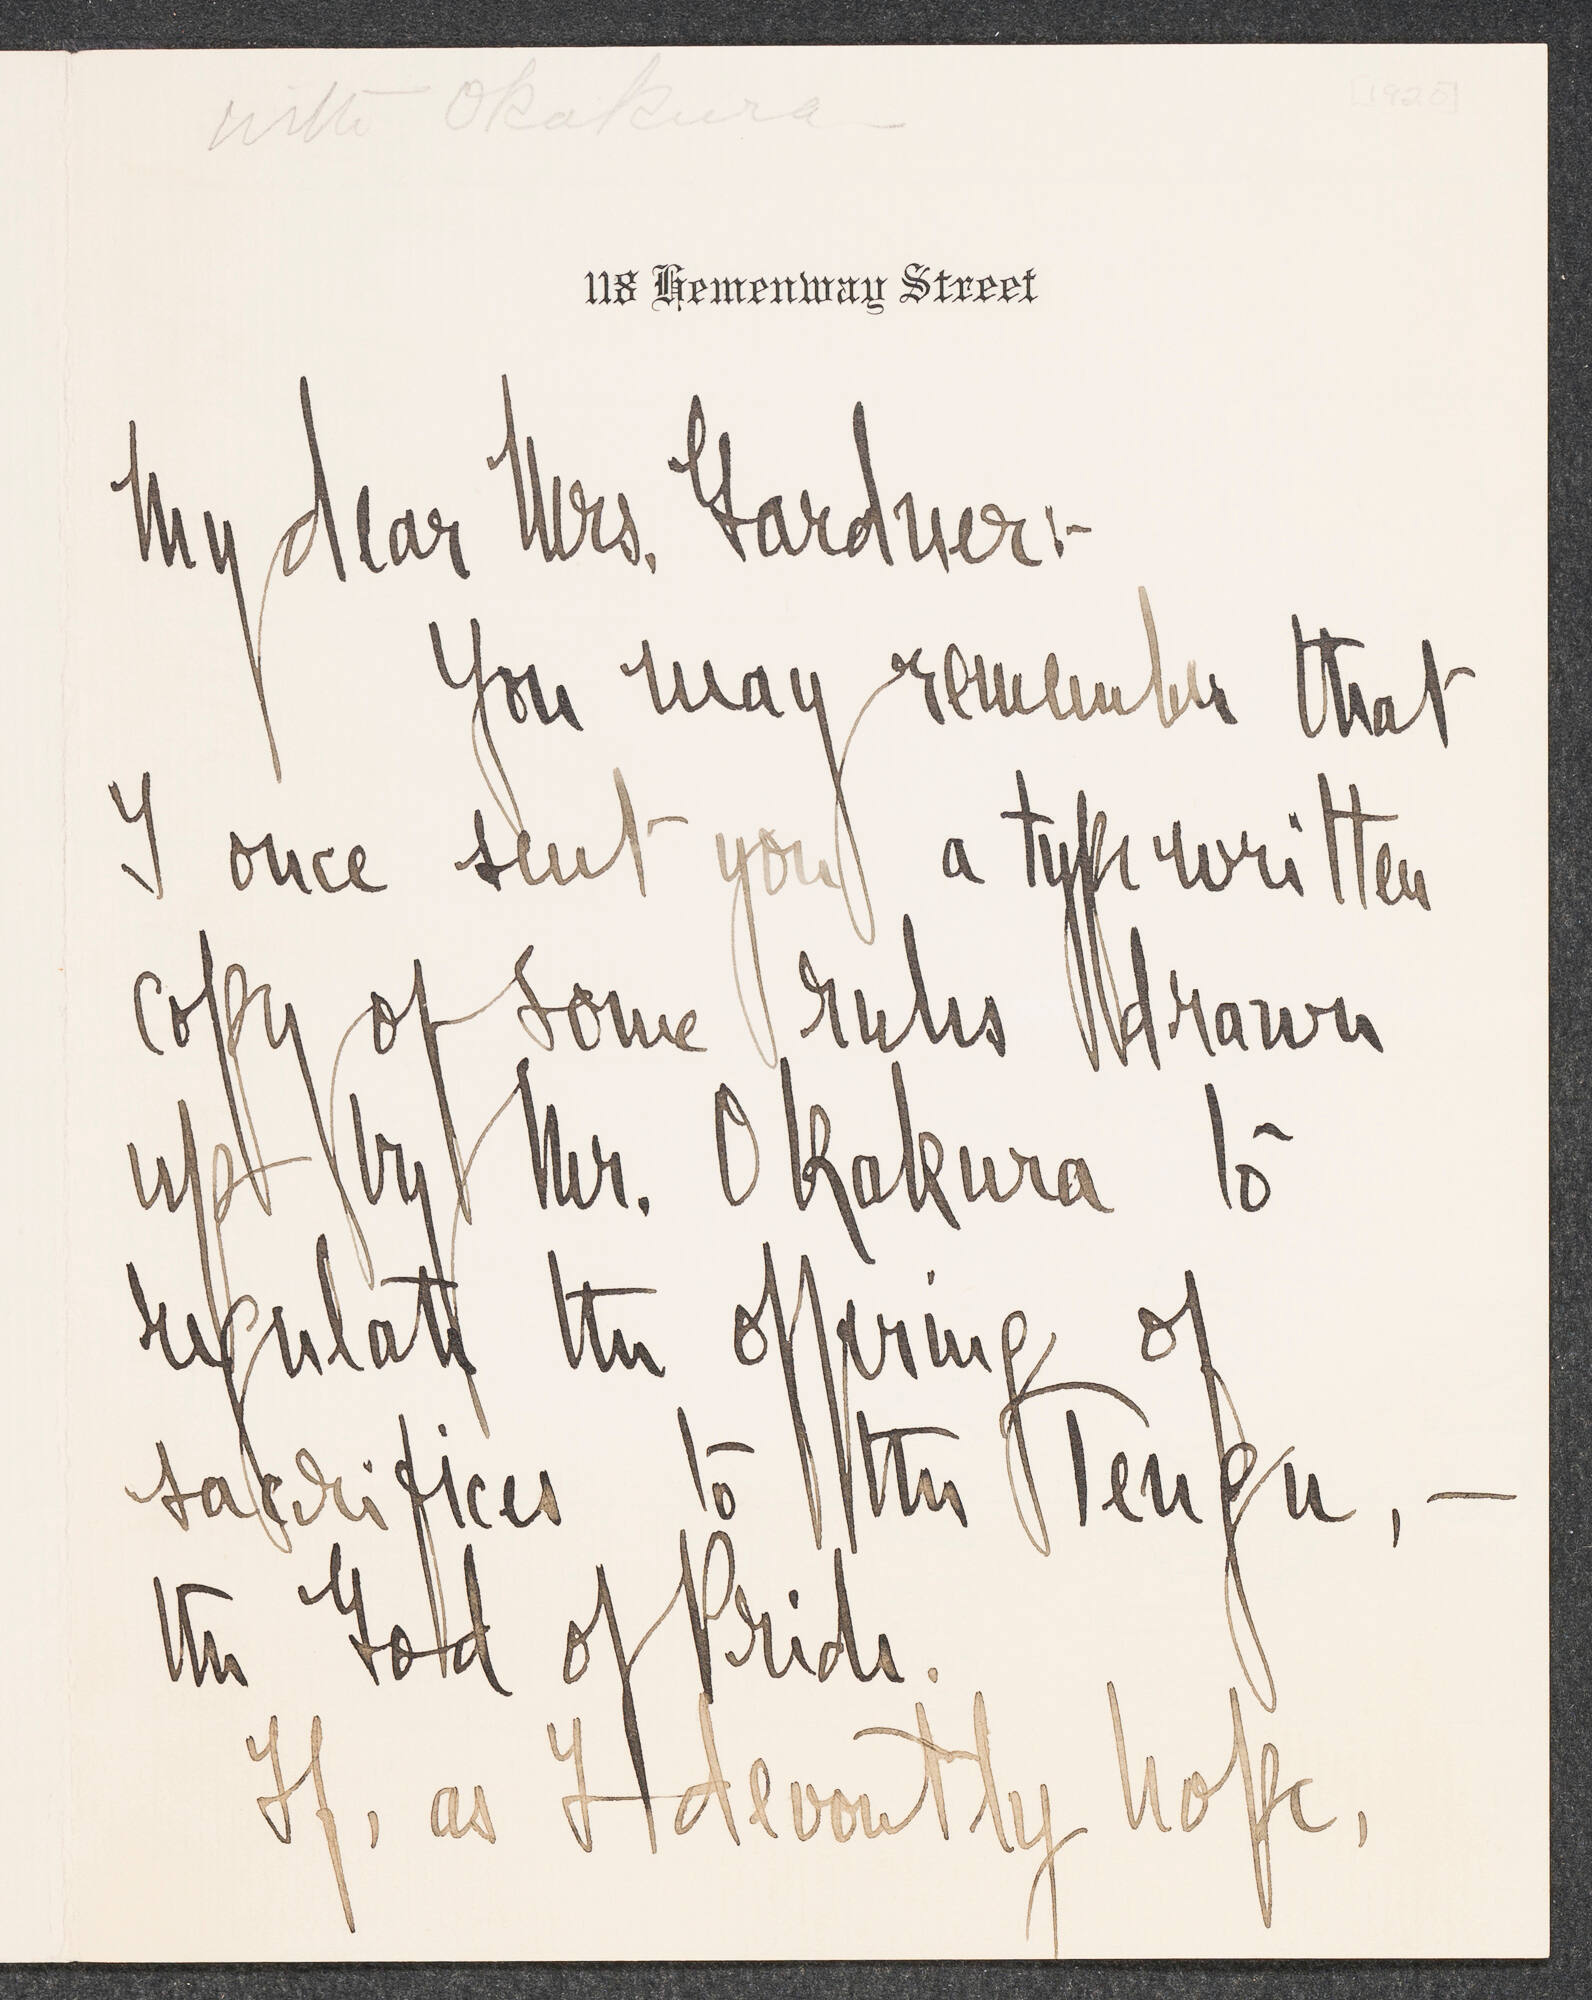 with Okakura
118 Hemenway Street
My dear Mrs. Gardner:-
You may remember that
I once sent you a typewritten
copy of some rules drawn
up by Mr. Okakura to
regulate the offering of
sacrifices to the Tengu, —
the God of Pride.
If, as I devoutly hope,